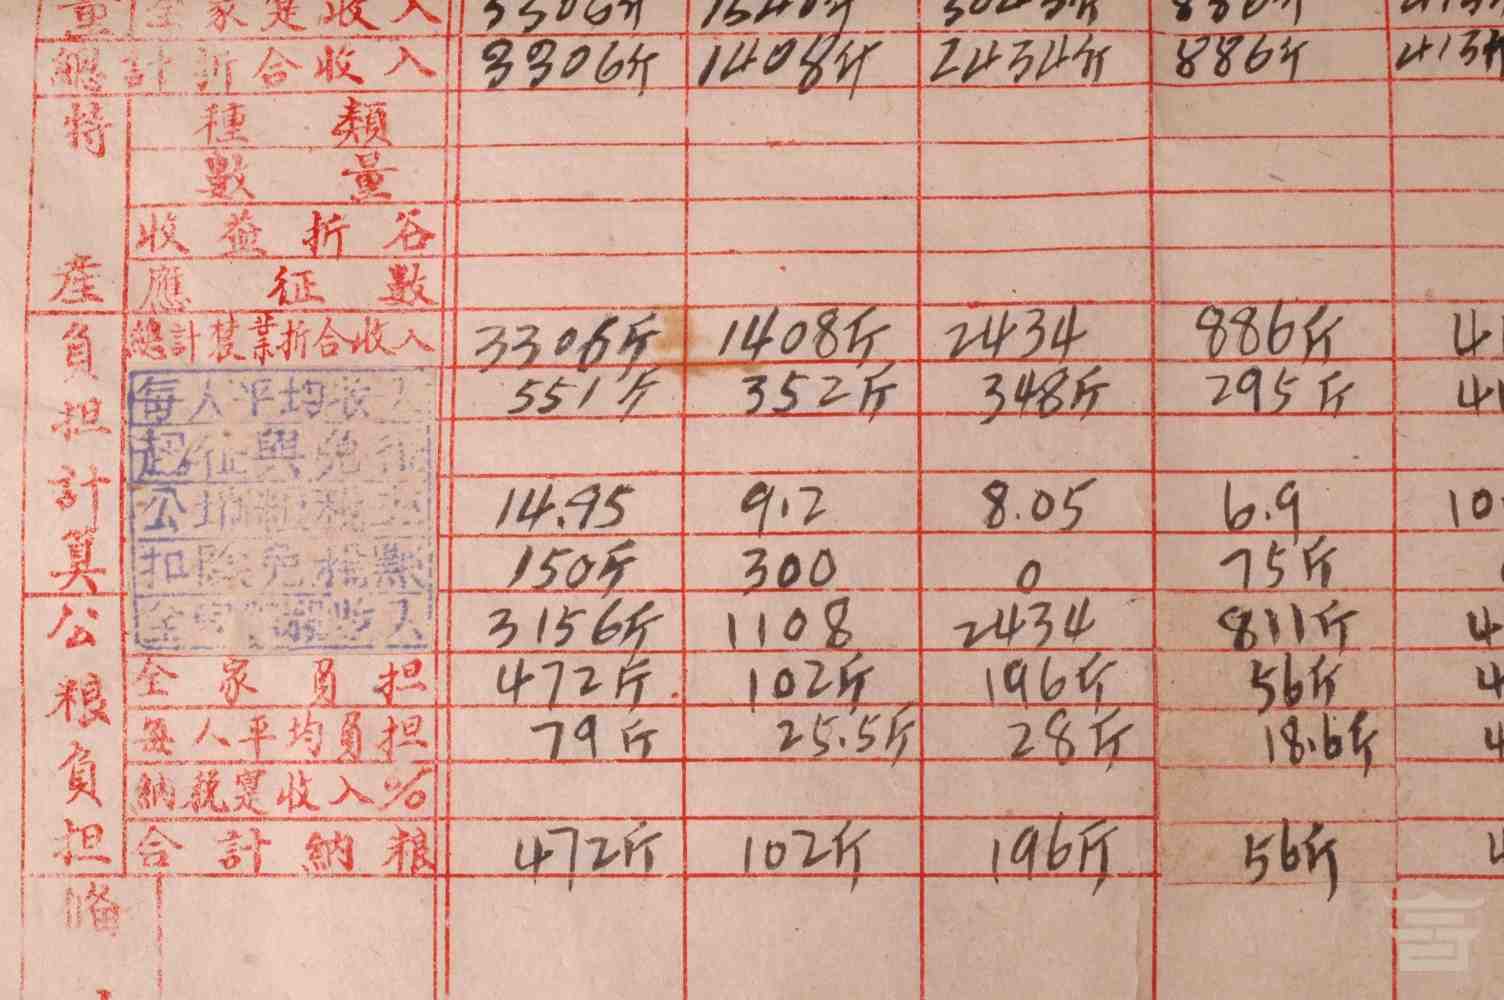 全家定收入 3306斤 1540斤 3043斤 886斤
總計折合收入 3306斤 1408斤 2434斤 886斤 413斤
特產
種類
數量
收益折谷
應征數
負担計算
總計農業折合收入 3306斤 1408斤 2434 886斤 41
每人平均收入 551斤 352斤 348斤 295斤 41
起征與免征
公 14.95 9.2 8.05 6.9 10
扣除免税 150斤 300 0 75斤
全 收入 3156斤 1108 2434 811斤 4
公粮負担
全家負担 472斤 102斤 196斤 56斤 4
每人平均負担 79斤 25.5斤 28斤 18.6斤 4
納税實收入%
合計納粮 472斤 102斤 196斤 56斤 4
備